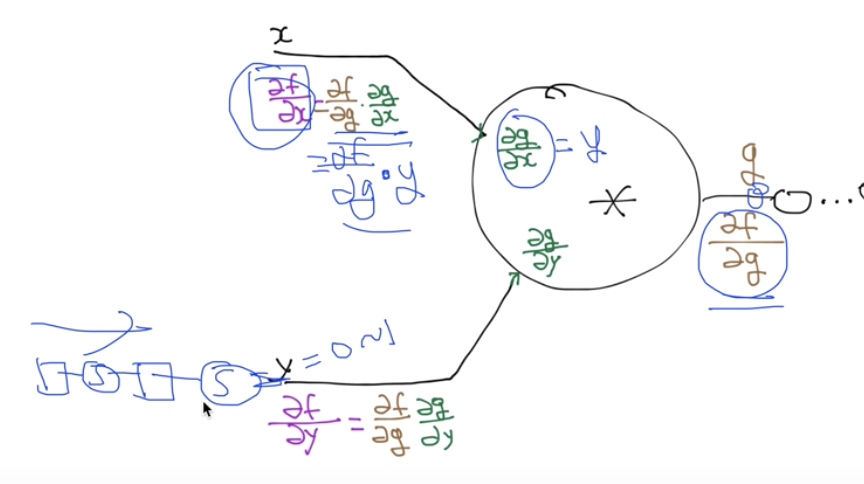 x
∂f/∂x = ∂f/∂g · ∂g/∂x
= ∂f/∂g · y
∂g/∂x = y
*
∂g/∂y
g
∂f/∂g
...
S
S
y = 0~1
∂f/∂y = ∂f/∂g ∂g/∂y